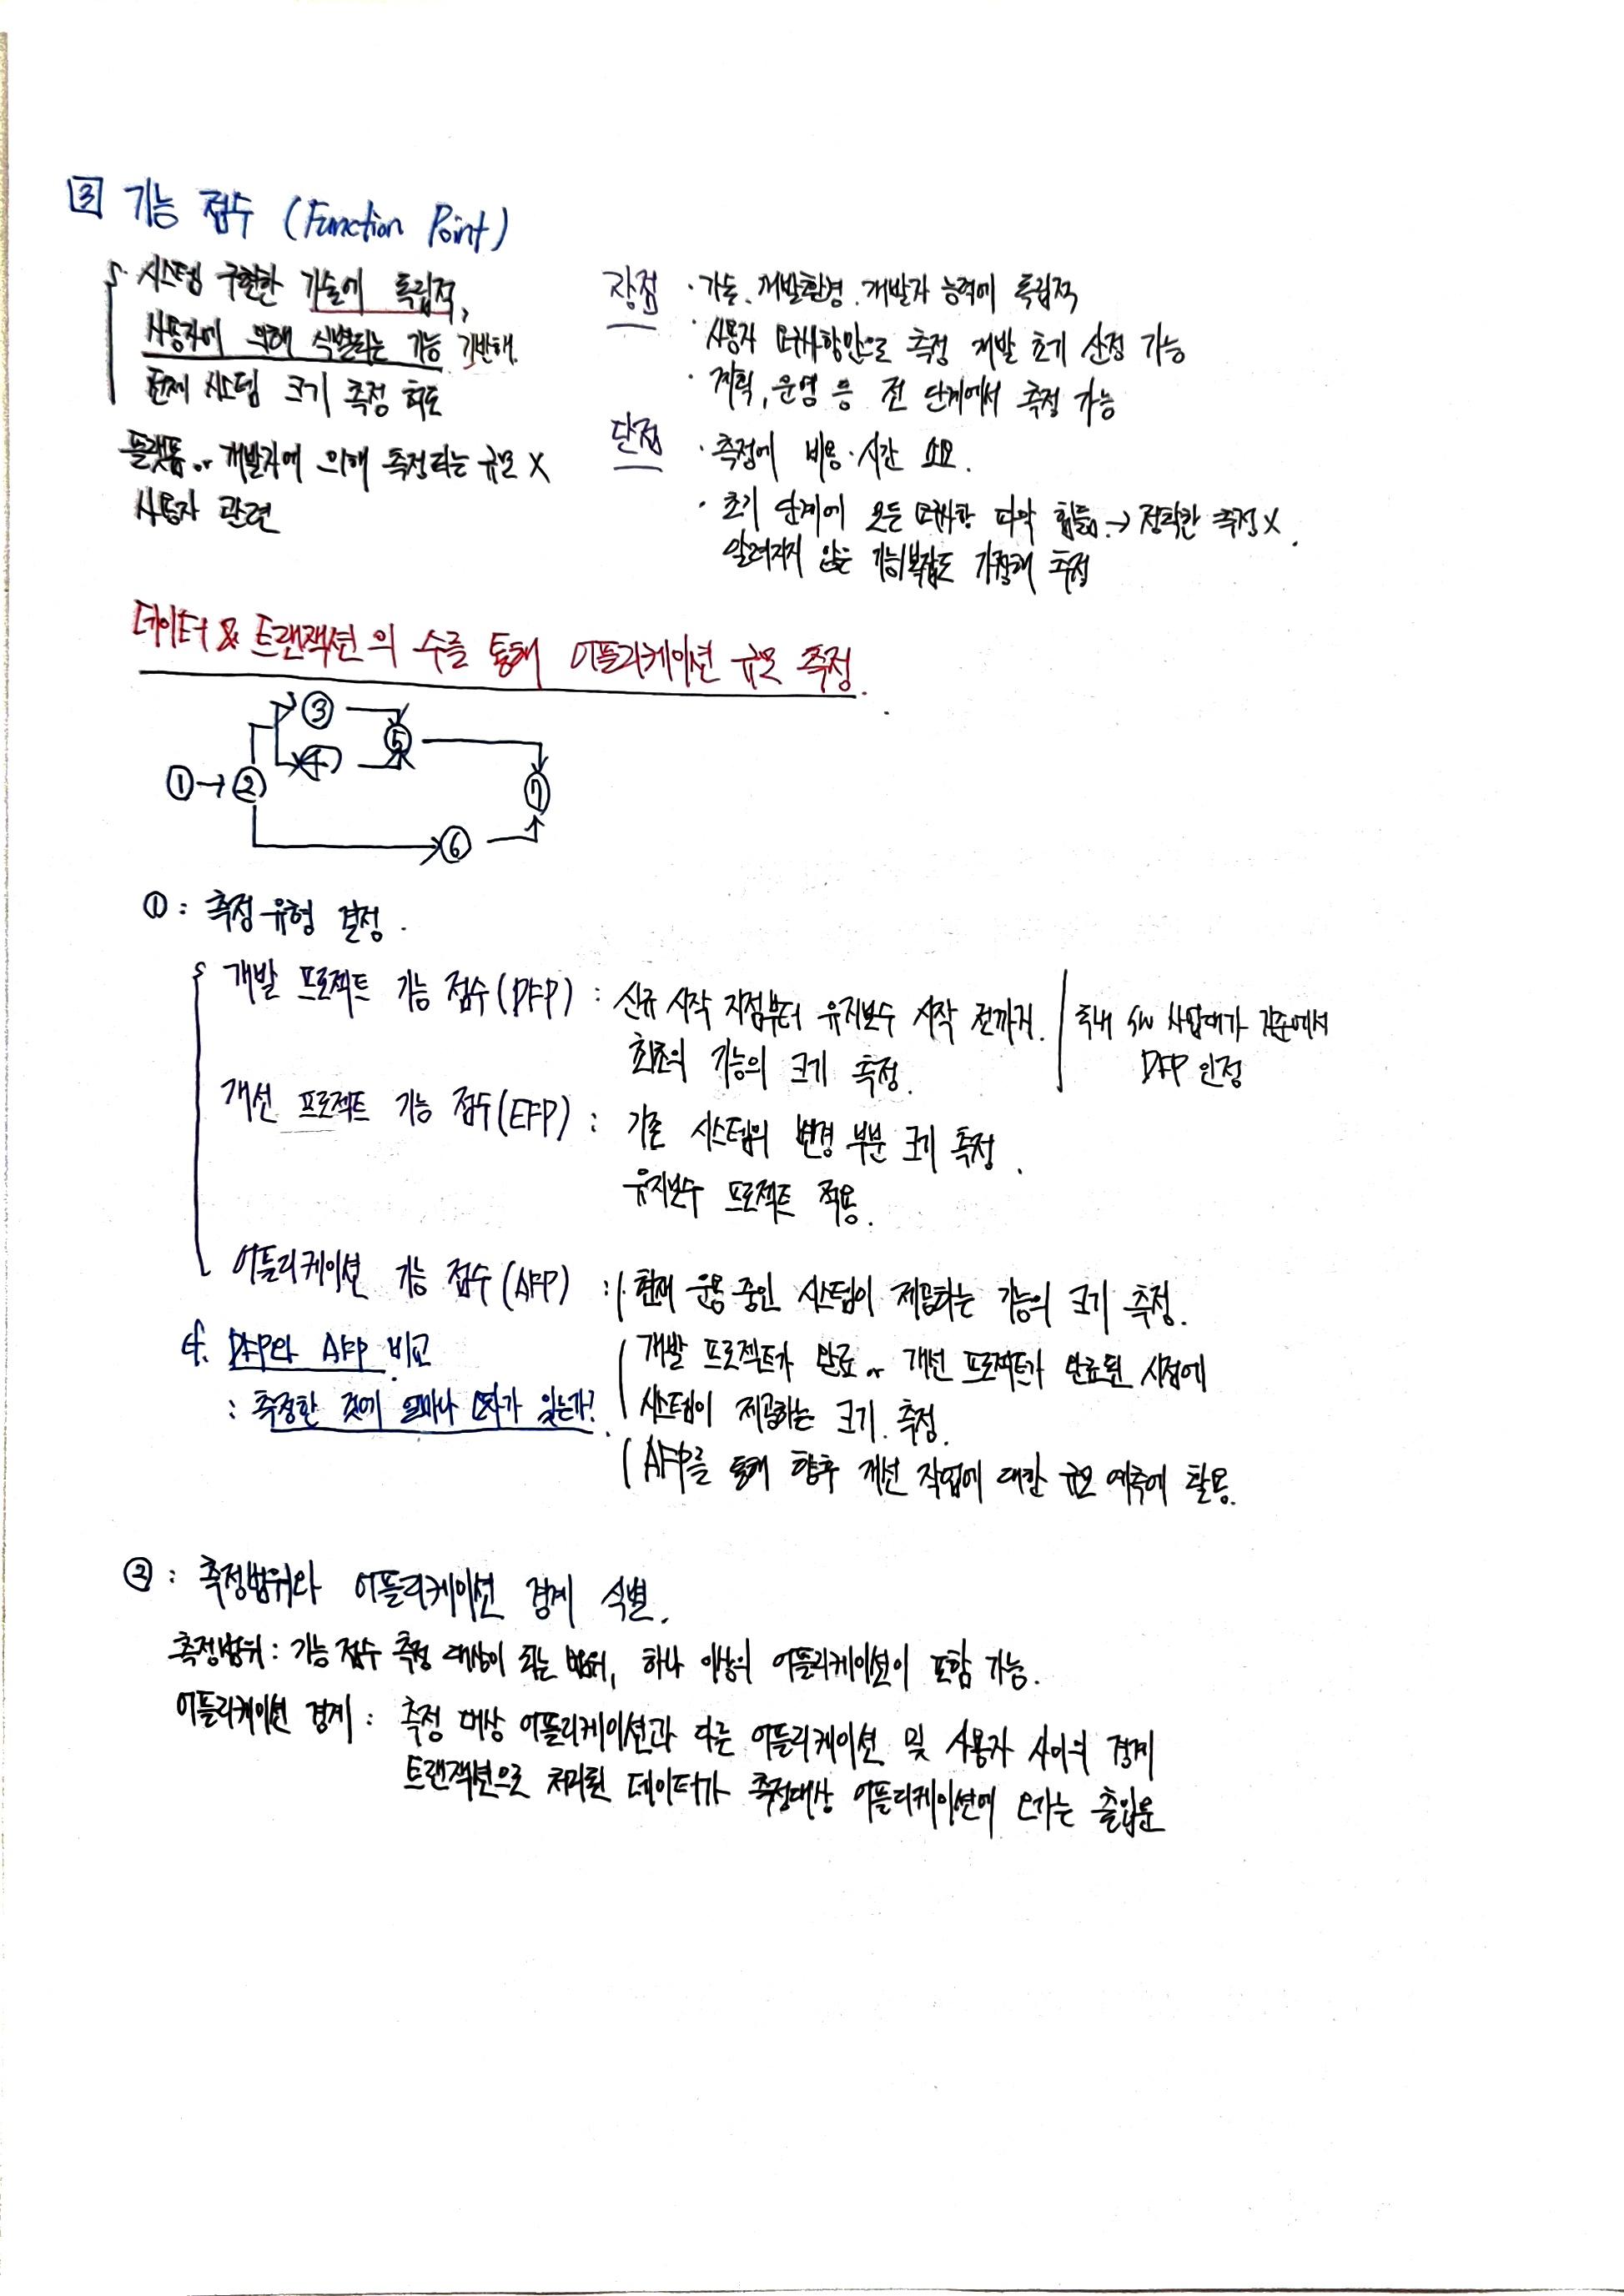 3 기능 점수 (Function Point)
· 시스템 구현한 기술에 독립적,
사용자에 의해 식별되는 기능 기반해.
전체 시스템 크기 측정 척도
플랫폼 or 개발자에 의해 측정되는 규모 X
사용자 관련
장점 · 기술, 개발환경, 개발자 능력에 독립적
· 사용자 요구사항만으로 측정 개발 초기 산정 가능
· 계획, 운영 등 전 단계에서 측정 가능
단점 · 측정에 비용·시간 소요.
· 초기 단계에 모든 요구사항 파악 힘듦. → 정확한 측정 X.
알려지지 않은 기능복잡도 가정해 측정
데이터 & 트랜잭션의 수를 통해 어플리케이션 규모 측정.
① → ② ③ ④ ⑤ ⑥ ⑦
① : 측정 유형 결정.
개발 프로젝트 기능 점수 (DFP) : 신규 시작 지점부터 유지보수 시작 전까지.
최초의 기능의 크기 측정.
국내 SW 사업대가 기준에서
DFP 인정
개선 프로젝트 기능 점수 (EFP) : 기존 시스템의 변경 부분 크기 측정.
유지보수 프로젝트 적용.
어플리케이션 기능 점수 (AFP) : · 현재 운용 중인 시스템이 제공하는 기능의 크기 측정.
개발 프로젝트가 완료 or 개선 프로젝트가 완료된 시점에
시스템이 제공하는 크기 측정.
AFP를 통해 향후 개선 작업에 대한 규모 예측에 활용.
cf. DFP와 AFP 비교
: 측정한 것에 얼마나 오차가 있는가?
② : 측정범위와 어플리케이션 경계 식별.
측정범위 : 기능 점수 측정 대상이 되는 범위, 하나 이상의 어플리케이션이 포함 가능.
어플리케이션 경계 : 측정 대상 어플리케이션과 다른 어플리케이션 및 사용자 사이의 경계
트랜잭션으로 처리된 데이터가 측정대상 어플리케이션에 오가는 출입문